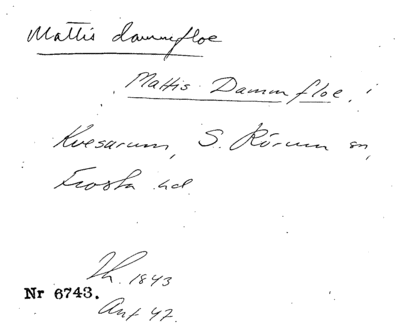 Mattis dammfloe
Mattis Dammfloe,
Kvesarum, S. Rörum sn,
Frosta hd
Th. 1843
Nr 6743.
Ant 47.